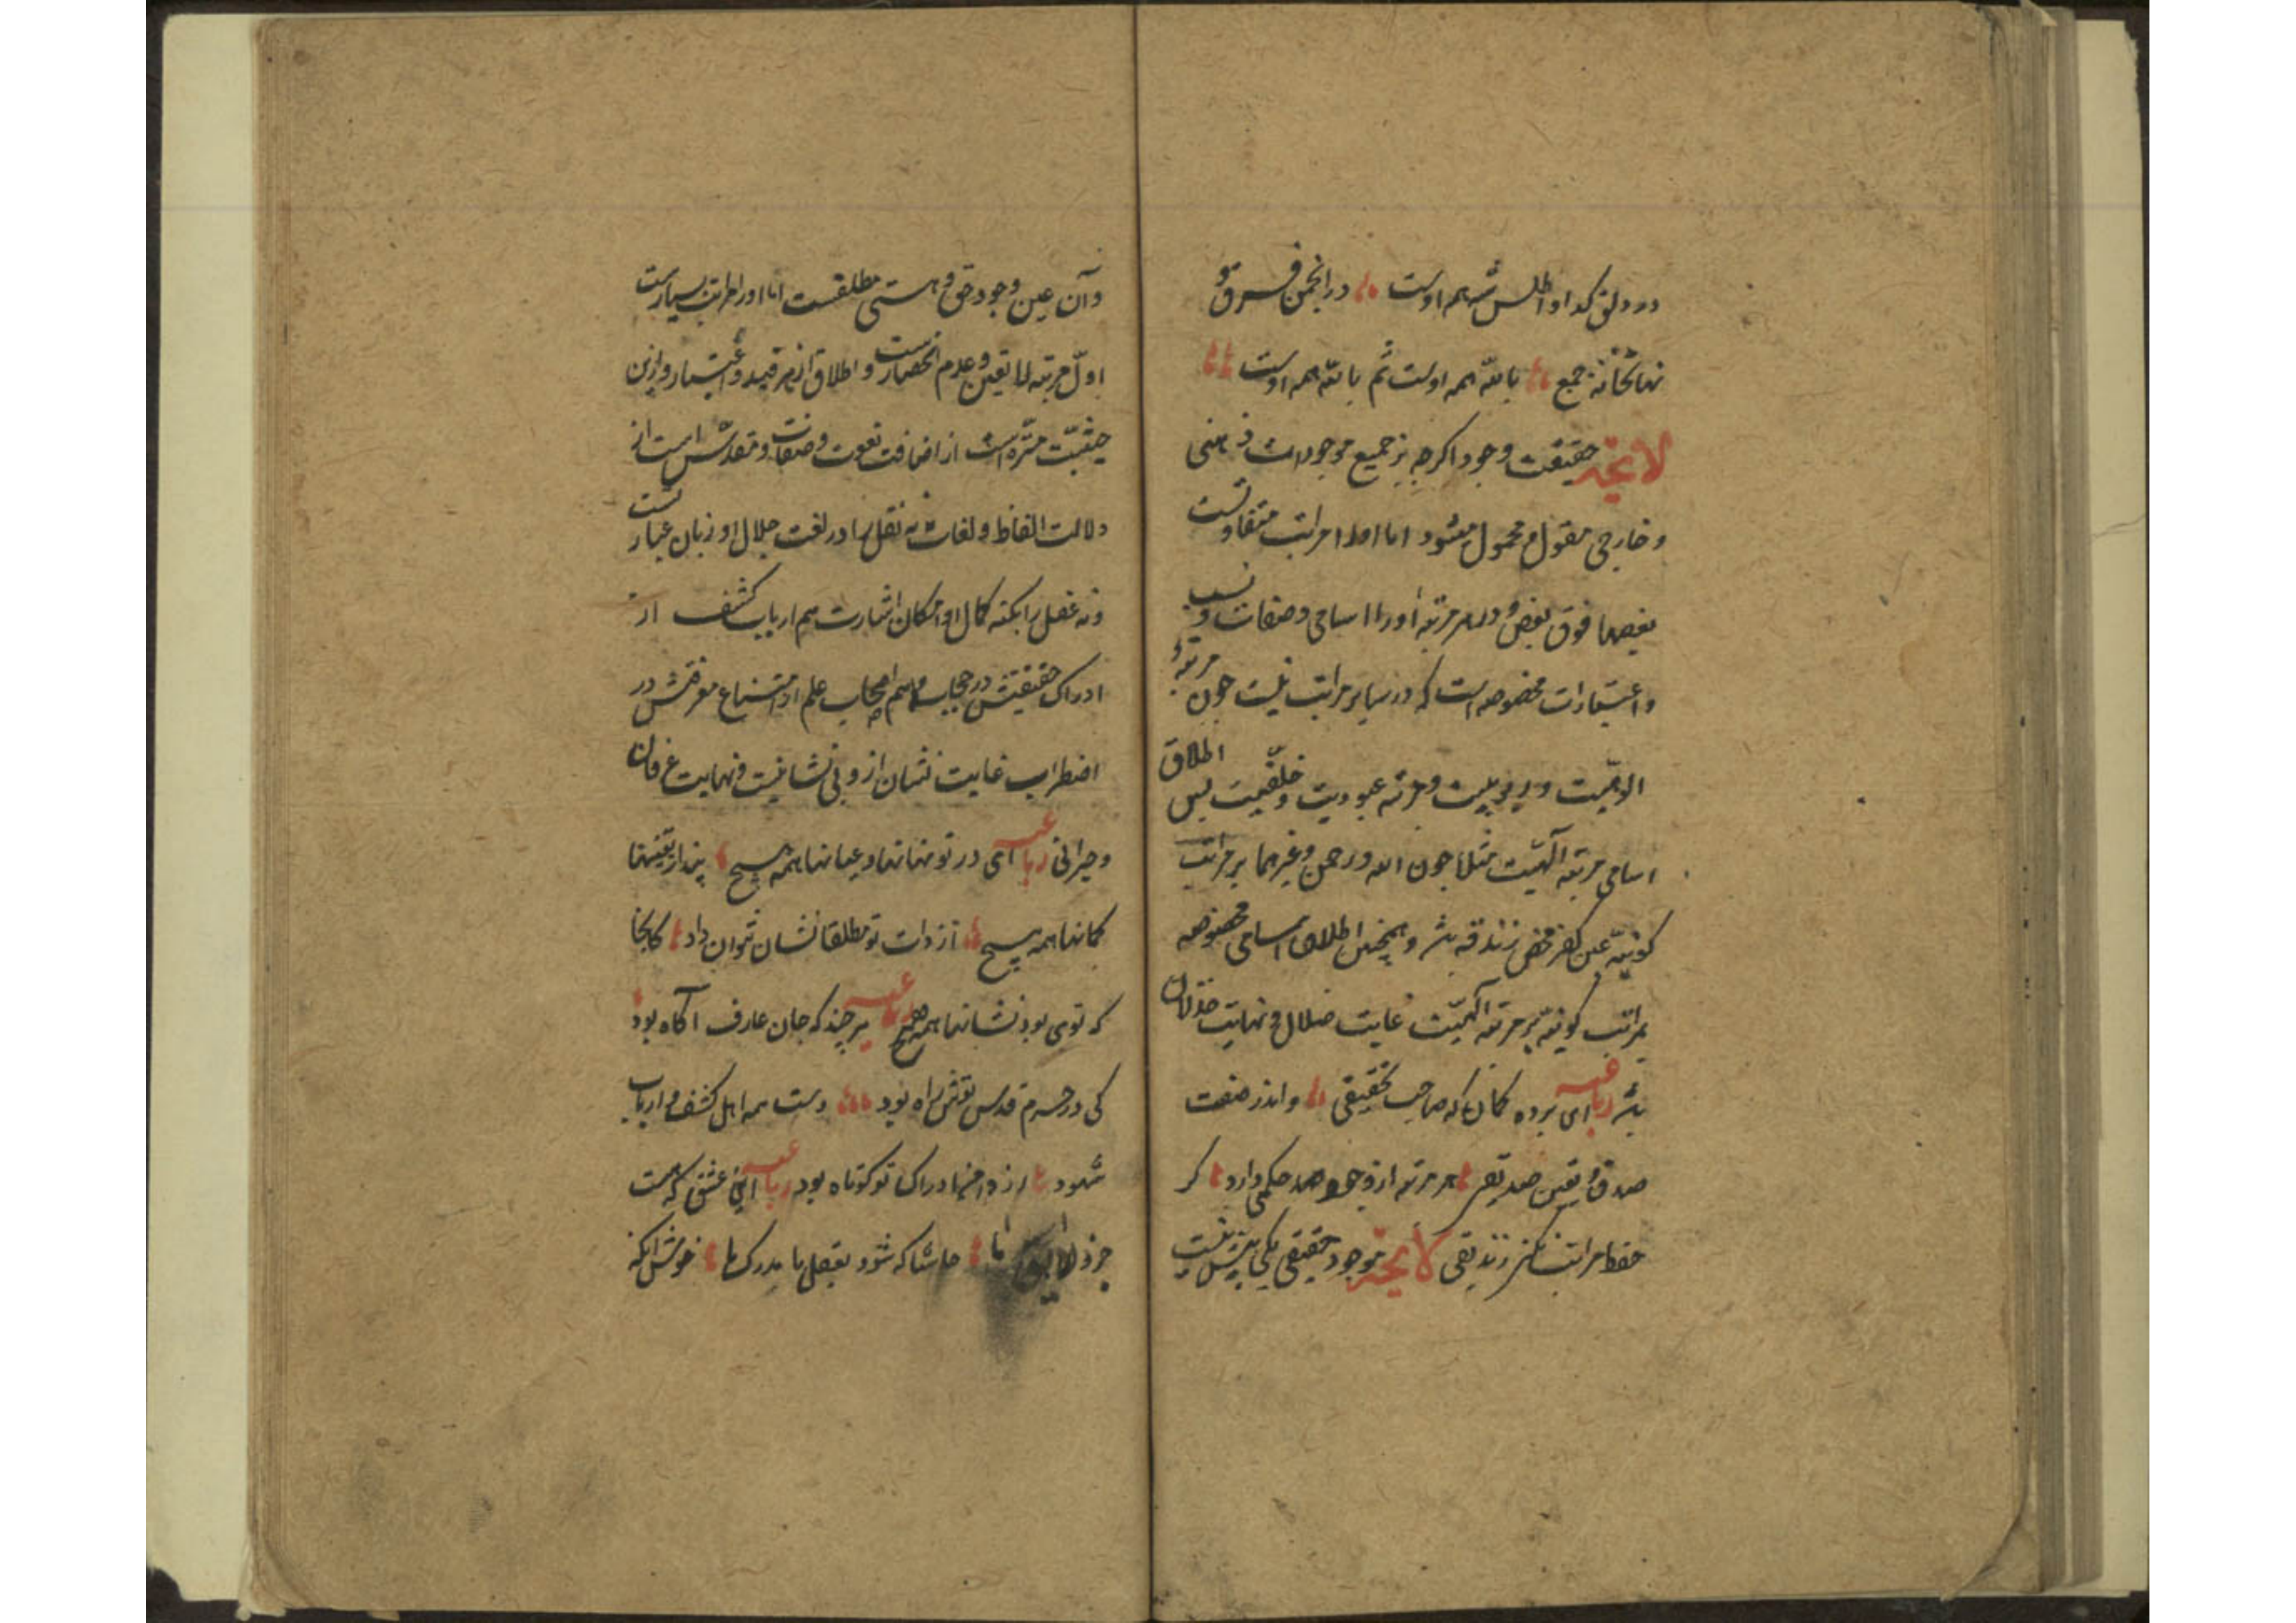 در دلق گدا و اطلس شه همه اوست در انجمن فرق و
نهانخانه جمع بالله همه اوست ثم بالله همه اوست
لایحه حقیقت وجود اکرچه بر جمیع موجودات ذهنی
و خارجی مقول و محمول میشود اما او را مراتب متفاوتست
بعضها فوق بعض و در هر مرتبه او را اسامی و صفات و نسب
و اعتبارات مخصوصه است که در سایر مراتب نیست چون مرتبهٔ
الوهیت و ربوبیت و مرتبه عبودیت و خلقیت پس اطلاق
اسامی مرتبه الهیت مثلا چون الله و رحمن و غیرهما بر مراتب
کونیه عین کفر محض زندقه باشد و همچنین اطلاق اسامی مخصوصه
بمراتب کونیه بر مرتبه الهیت غایت ضلال و نهایت خذلان
باشد رباعیه ای برده کمان که صاحب تحقیقی و اندر صفت
صدق و یقین صدیقی هر مرتبه از وجود حکمی دارد کر
حفظ مراتب نکنی زندیقی لایحه موجود حقیقی یکی بیش نیست
و آن عین وجود حق و هستی مطلقست اما او را مراتب بسیارست
اول مرتبه لا تعین و عدم انحصارست و اطلاق از هر قید و اعتبار و ازین
حیثیت منزه است از اضافت نعوت و صفات و مقدس است از
دلالت الفاظ و لغات نه نقل را در لغت جلال او زبان عبارتست
و نه عقل را بکنه کمال او امکان اشارت هم ارباب کشف از
ادراک حقیقتش در حجاب و هم اصحاب علم از امتناع معرفتش در
اضطراب غایت نشان از و بی نشانیست و نهایت عرفان
و حیرانی رباعیه ای در تو نهانها و عیانها همه هیچ پندار یقینها
کمانها همه هیچ از ذات تو مطلقا نشان نتوان داد کانجا
که توی بود نشانها همه هیچ رباعیه هر چند که جان عارف آگاه بود
کی در حرم قدس تواش راه بود دست همه اهل کشف و ارباب
شهود از دامن ادراک تو کوتاه بود رباعیه این عشق که هست
جزو لا ینفک ما حاشا که شود بعقل ما مدرک ما خوش آنکه